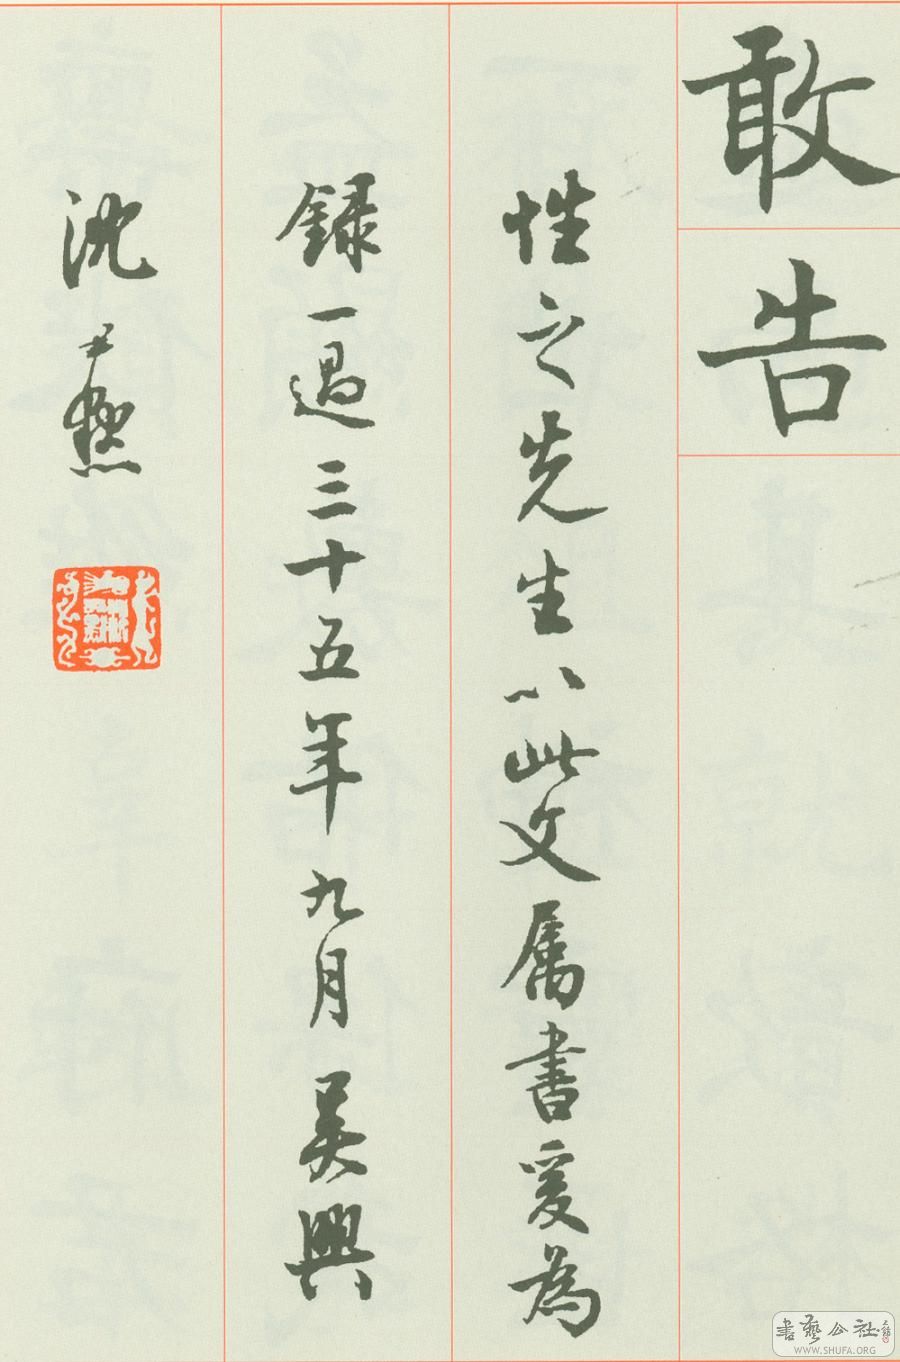 敢告
性之先生以此文属書爰為
録一過三十五年九月吴興
沈尹默
書藝公社
WWW.SHUFA.ORG